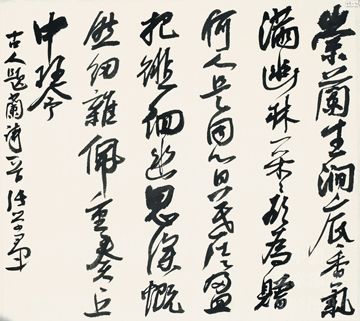 崇蘭生澗底香氣
滿幽林采采欲為贈
何人是同心日暮徒盈
把徘徊思深慨
然紉雜佩重奏丘
中琴
古人題蘭詩一首